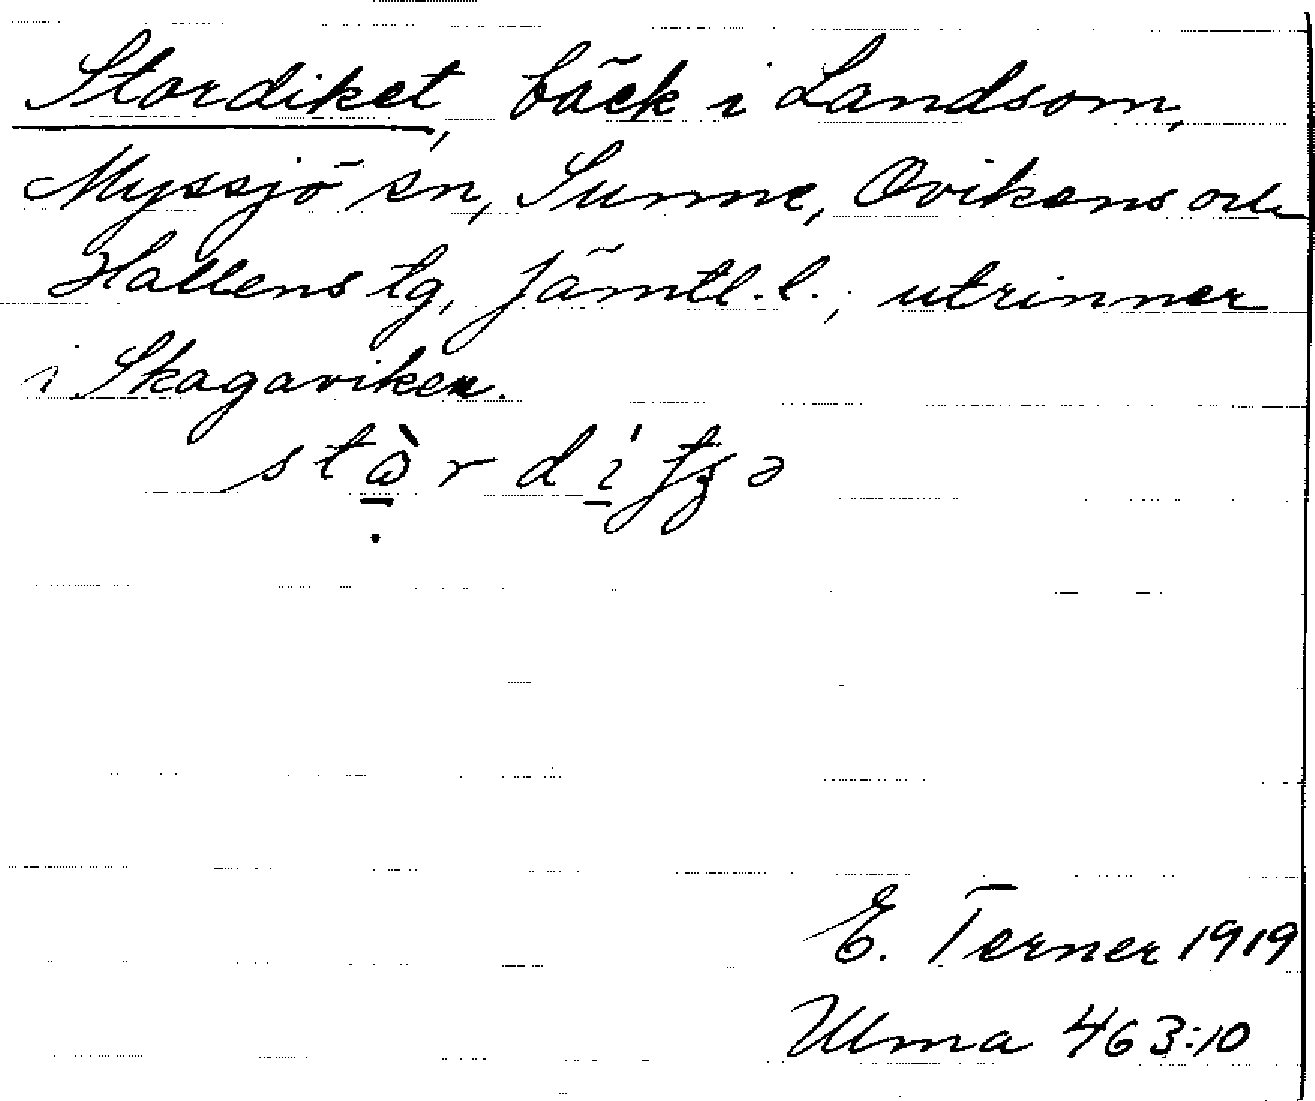 Stordiket, bäck i Landsom,
Myssjö sn, Sunne, Ovikens och
Hallens tg, Jämtl. l., utrinner
i Skagaviken.
E. Terner 1919
Ulma 463:10